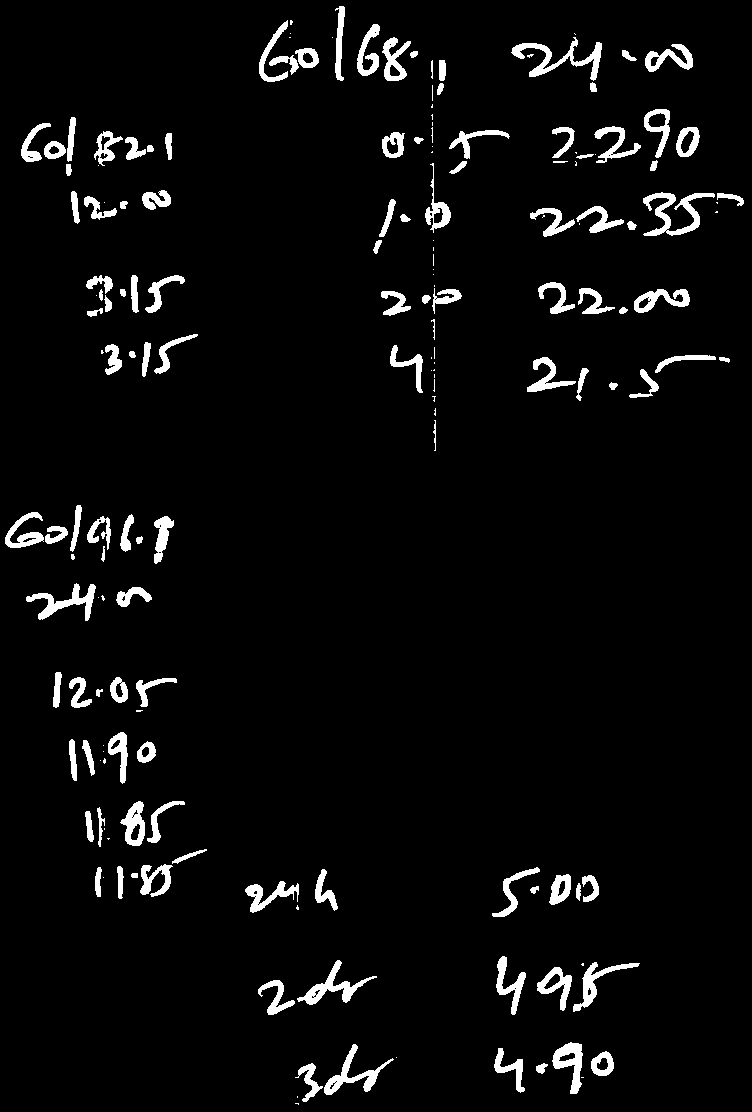 60/68.1 24.00
60/82.1 0.5 22.90
12.00 1.0 22.35
3.15 2.0 22.00
3.15 4 21.5
60/96.1
24.00
12.05
11.90
11.85
11.85 24h 5.00
2ds 4.95
3ds 4.90